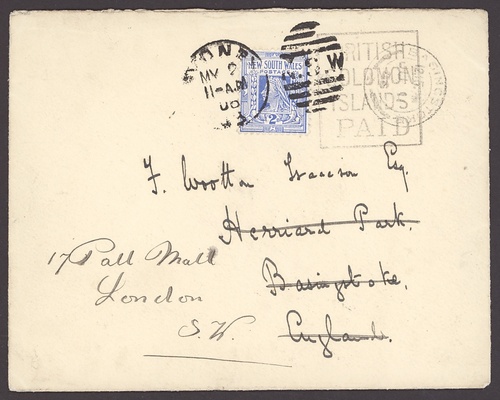 SYDNEY
MY 2
11-AM
06
N.S.W
NEW SOUTH WALES
POSTAGE
2
BRITISH
SOLOMON
ISLANDS
PAID
F. Wootton Isaacson Esq.
Herriard Park.
Basingstoke.
England.
17 Pall Mall
London
S.W.